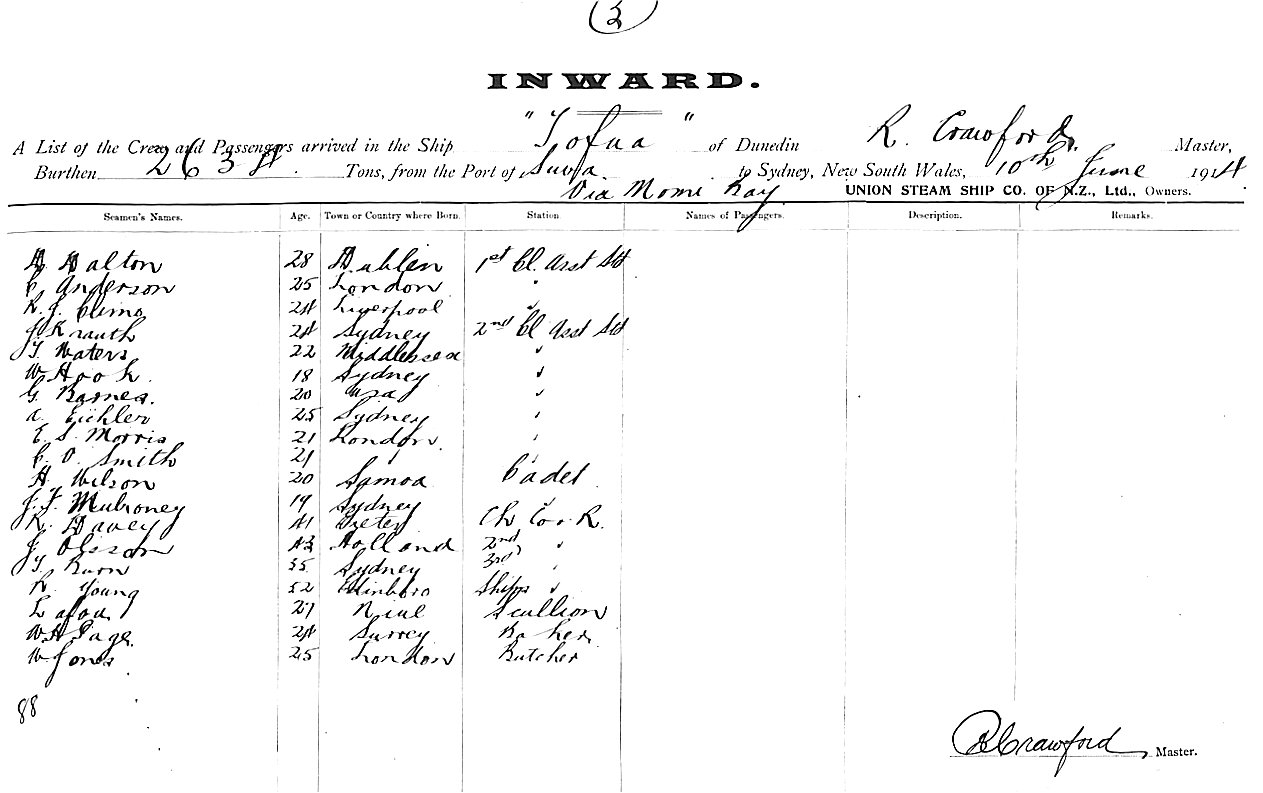 (3)
INWARD.
A List of the Crew and Passengers arrived in the Ship "Tofua" of Dunedin R. Crawford Master,
Burthen 2638 Tons, from the Port of Suva to Sydney, New South Wales, 10th June 1914
Via Momi Bay UNION STEAM SHIP CO. OF N.Z., Ltd., Owners.
Seamen's Names. Age. Town or Country where Born. Station. Names of Passengers. Description. Remarks.
D Dalton 28 Dublin 1st Cl. Asst Std
C. Anderson 25 London "
R. J. Climo 24 Liverpool "
J. Krauth 24 Sydney 2nd Cl Asst Std
T. Waters 22 Middlesea "
W Hook 18 Sydney "
G. Barnes. 20 "
A. Eichler 25 Sydney "
E. S. Morris 21 London "
C. O. Smith 21 "
H. Wilson 20 Samoa Cadet
J. F. Mulroney 19 Sydney "
R. Davey 41 Exeter Ch Cook.
J. Olsson 43 Holland 2nd "
T. Burn 55 Sydney 3rd "
R. Young 52 Edinboro Ships "
Lafoa 27 Niue Scullion
W H Page 24 Surrey Baker
W Jones 25 London Butcher
88
R Crawford Master.